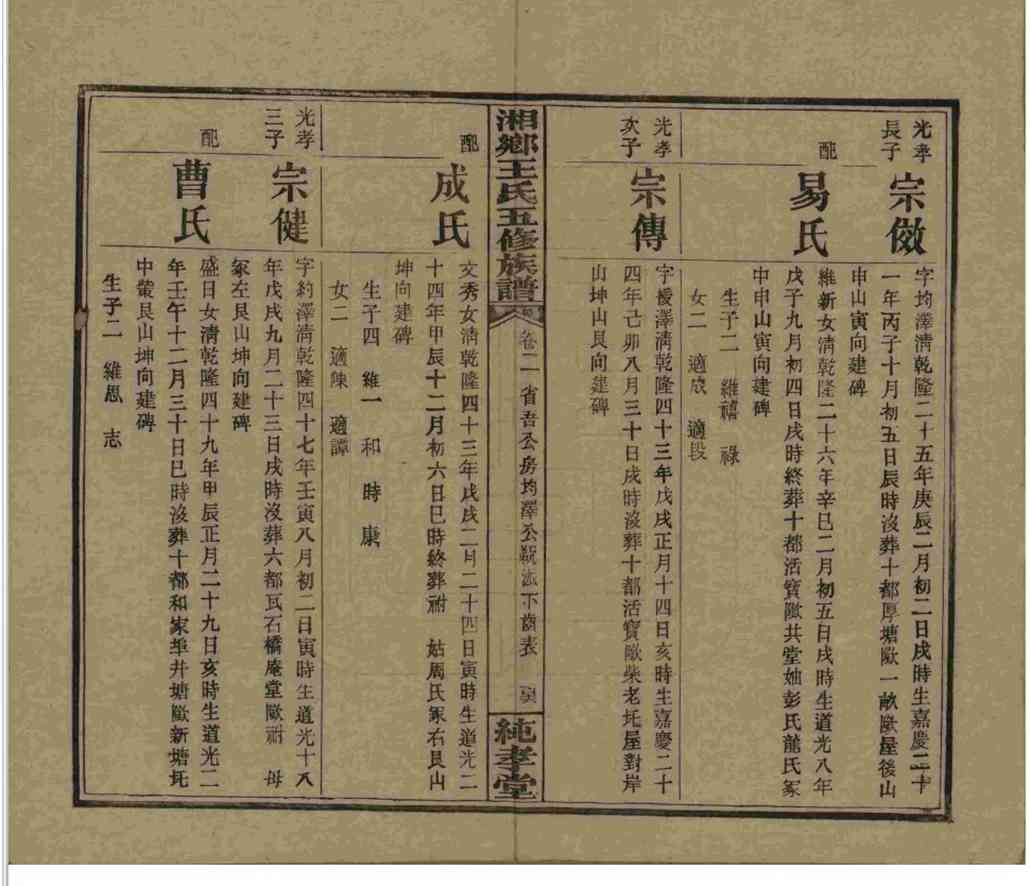 光孝長子
宗儆
字均澤淸乾隆二十五年庚辰二月初二日戌時生嘉慶二十
一年丙子十月初五日辰時沒葬十都厚塘歐一畝歐屋後山
申山寅向建碑
配
易氏
維新女淸乾隆二十六年辛巳二月初五日戌時生道光八年
戊子九月初四日戌時終葬十都活寶歐共堂妣彭氏龍氏冢
中申山寅向建碑
生子二 維禧 祿
女二 適成 適段
光孝次子
宗傳
字授澤淸乾隆四十三年戊戌正月十四日亥時生嘉慶二十
四年己卯八月三十日戌時沒葬十都活寶歐柴老坵屋對岸
山坤山艮向建碑
湘鄉王氏五修族譜
卷二
省吾公房均澤公派下齒表
純孝堂
配
成氏
文秀女淸乾隆四十三年戊戌二月二十四日寅時生道光二
十四年甲辰十二月初六日巳時終葬祔 姑周氏冢右艮山
坤向建碑
生子四 維一 和 時 康
女二 適陳 適譚
光孝三子
宗健
字約澤淸乾隆四十七年壬寅八月初二日寅時生道光十八
年戊戌九月二十三日戌時沒葬六都瓦石橋庵堂歐祔 母
冢左艮山坤向建碑
配
曹氏
盛日女淸乾隆四十九年甲辰正月二十九日亥時生道光二
年壬午十二月三十日巳時沒葬十都和家井塘歐新塘坵
中塋艮山坤向建碑
生子二 維思 志